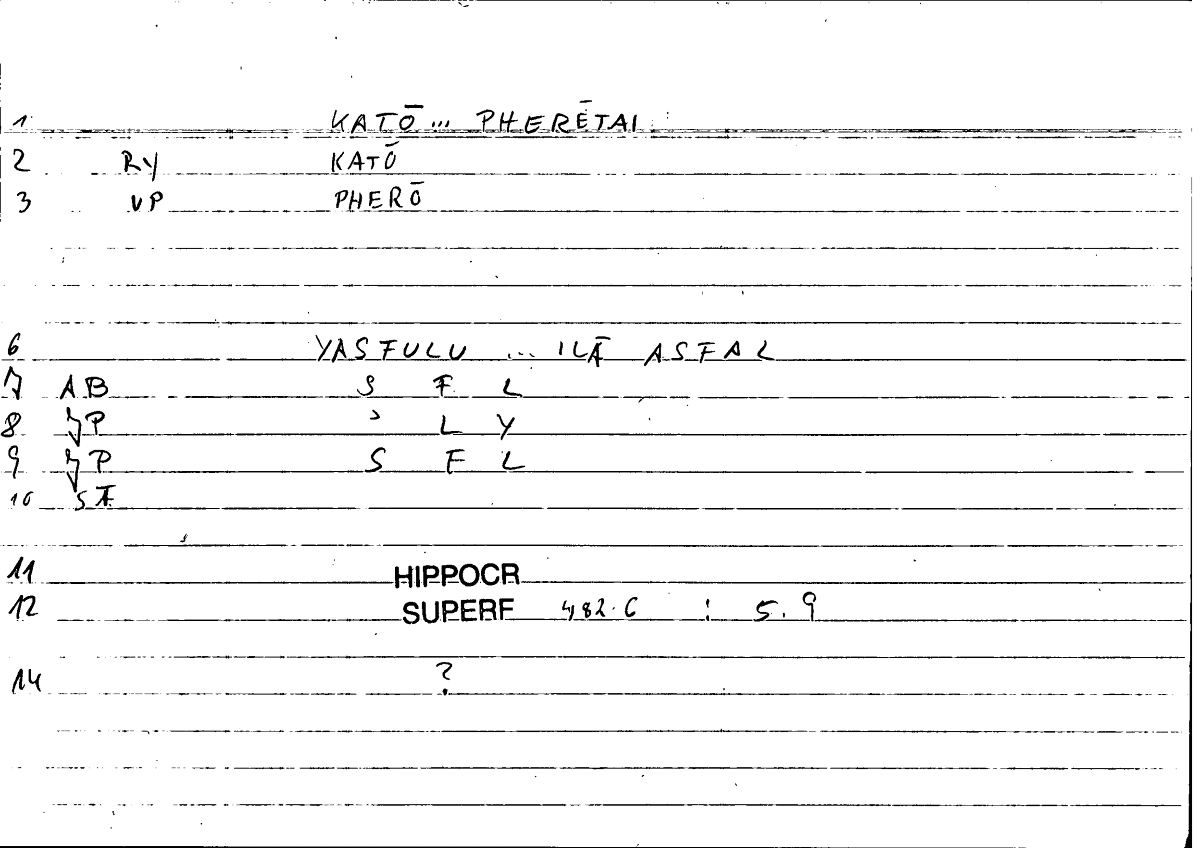 1 KATŌ... PHERĒTAI
2 RY KATŌ
3 VP PHERŌ
6 YASFULU ... ILĀ ASFAL
7 AB S F L
8 JP ' L Y
9 JP S F L
10 SĀ
11 HIPPOCR
12 SUPERF 482.6 : 5.9
14 ?